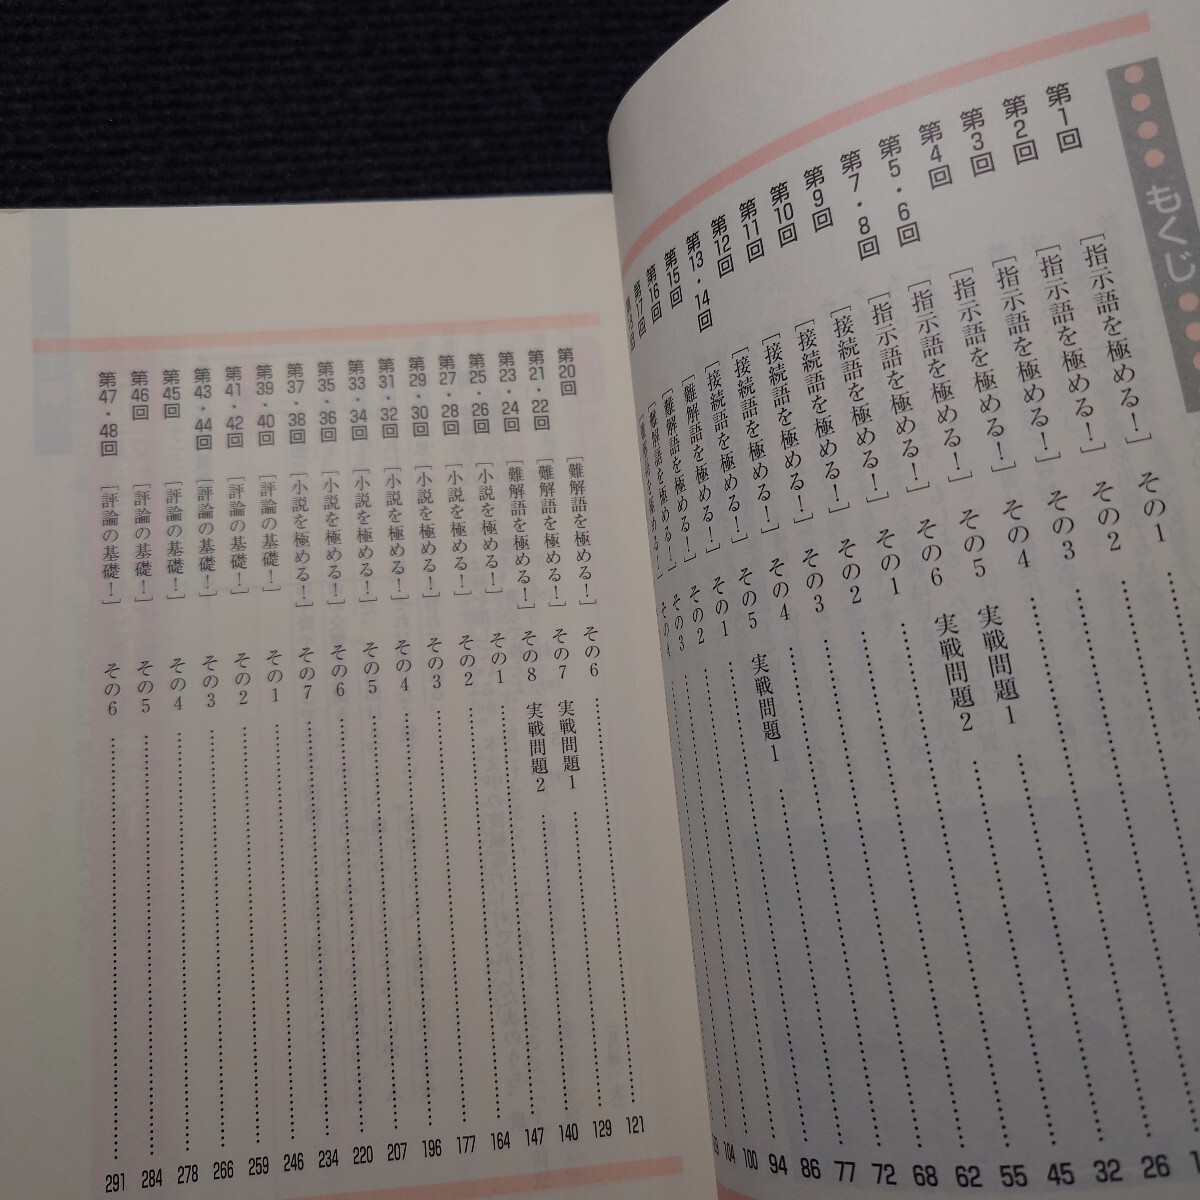 もくじ
第1回 [指示語を極める!] その1
第2回 [指示語を極める!] その2
第3回 [指示語を極める!] その3 26
第4回 [指示語を極める!] その4 32
第5・6回 [指示語を極める!] その5 実戦問題1 45
第7・8回 [指示語を極める!] その6 実戦問題2 55
第9回 [接続語を極める!] その1 62
第10回 [接続語を極める!] その2 68
第11回 [接続語を極める!] その3 72
第12回 [接続語を極める!] その4 77
第13・14回 [接続語を極める!] その5 実戦問題1 86
第15回 [難解語を極める!] その1 94
第16回 [難解語を極める!] その2 100
第17回 [難解語を極める!] その3 104
[難解語を極める!] その4
第20回 [難解語を極める!] その6 121
第21・22回 [難解語を極める!] その7 実戦問題1 129
第23・24回 [難解語を極める!] その8 実戦問題2 140
第25・26回 [小説を極める!] その1 147
第27・28回 [小説を極める!] その2 164
第29・30回 [小説を極める!] その3 177
第31・32回 [小説を極める!] その4 196
第33・34回 [小説を極める!] その5 207
第35・36回 [小説を極める!] その6 220
第37・38回 [小説を極める!] その7 234
第39・40回 [評論の基礎!] その1 246
第41・42回 [評論の基礎!] その2 259
第43・44回 [評論の基礎!] その3 266
第45回 [評論の基礎!] その4 278
第46回 [評論の基礎!] その5 284
第47・48回 [評論の基礎!] その6 291